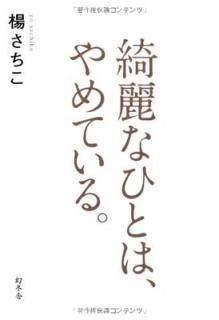 「著作権保護コンテンツ」
綺麗なひとは、
やめている。
yo sachiko
楊さちこ
幻冬舎
「著作権保護コンテンツ」